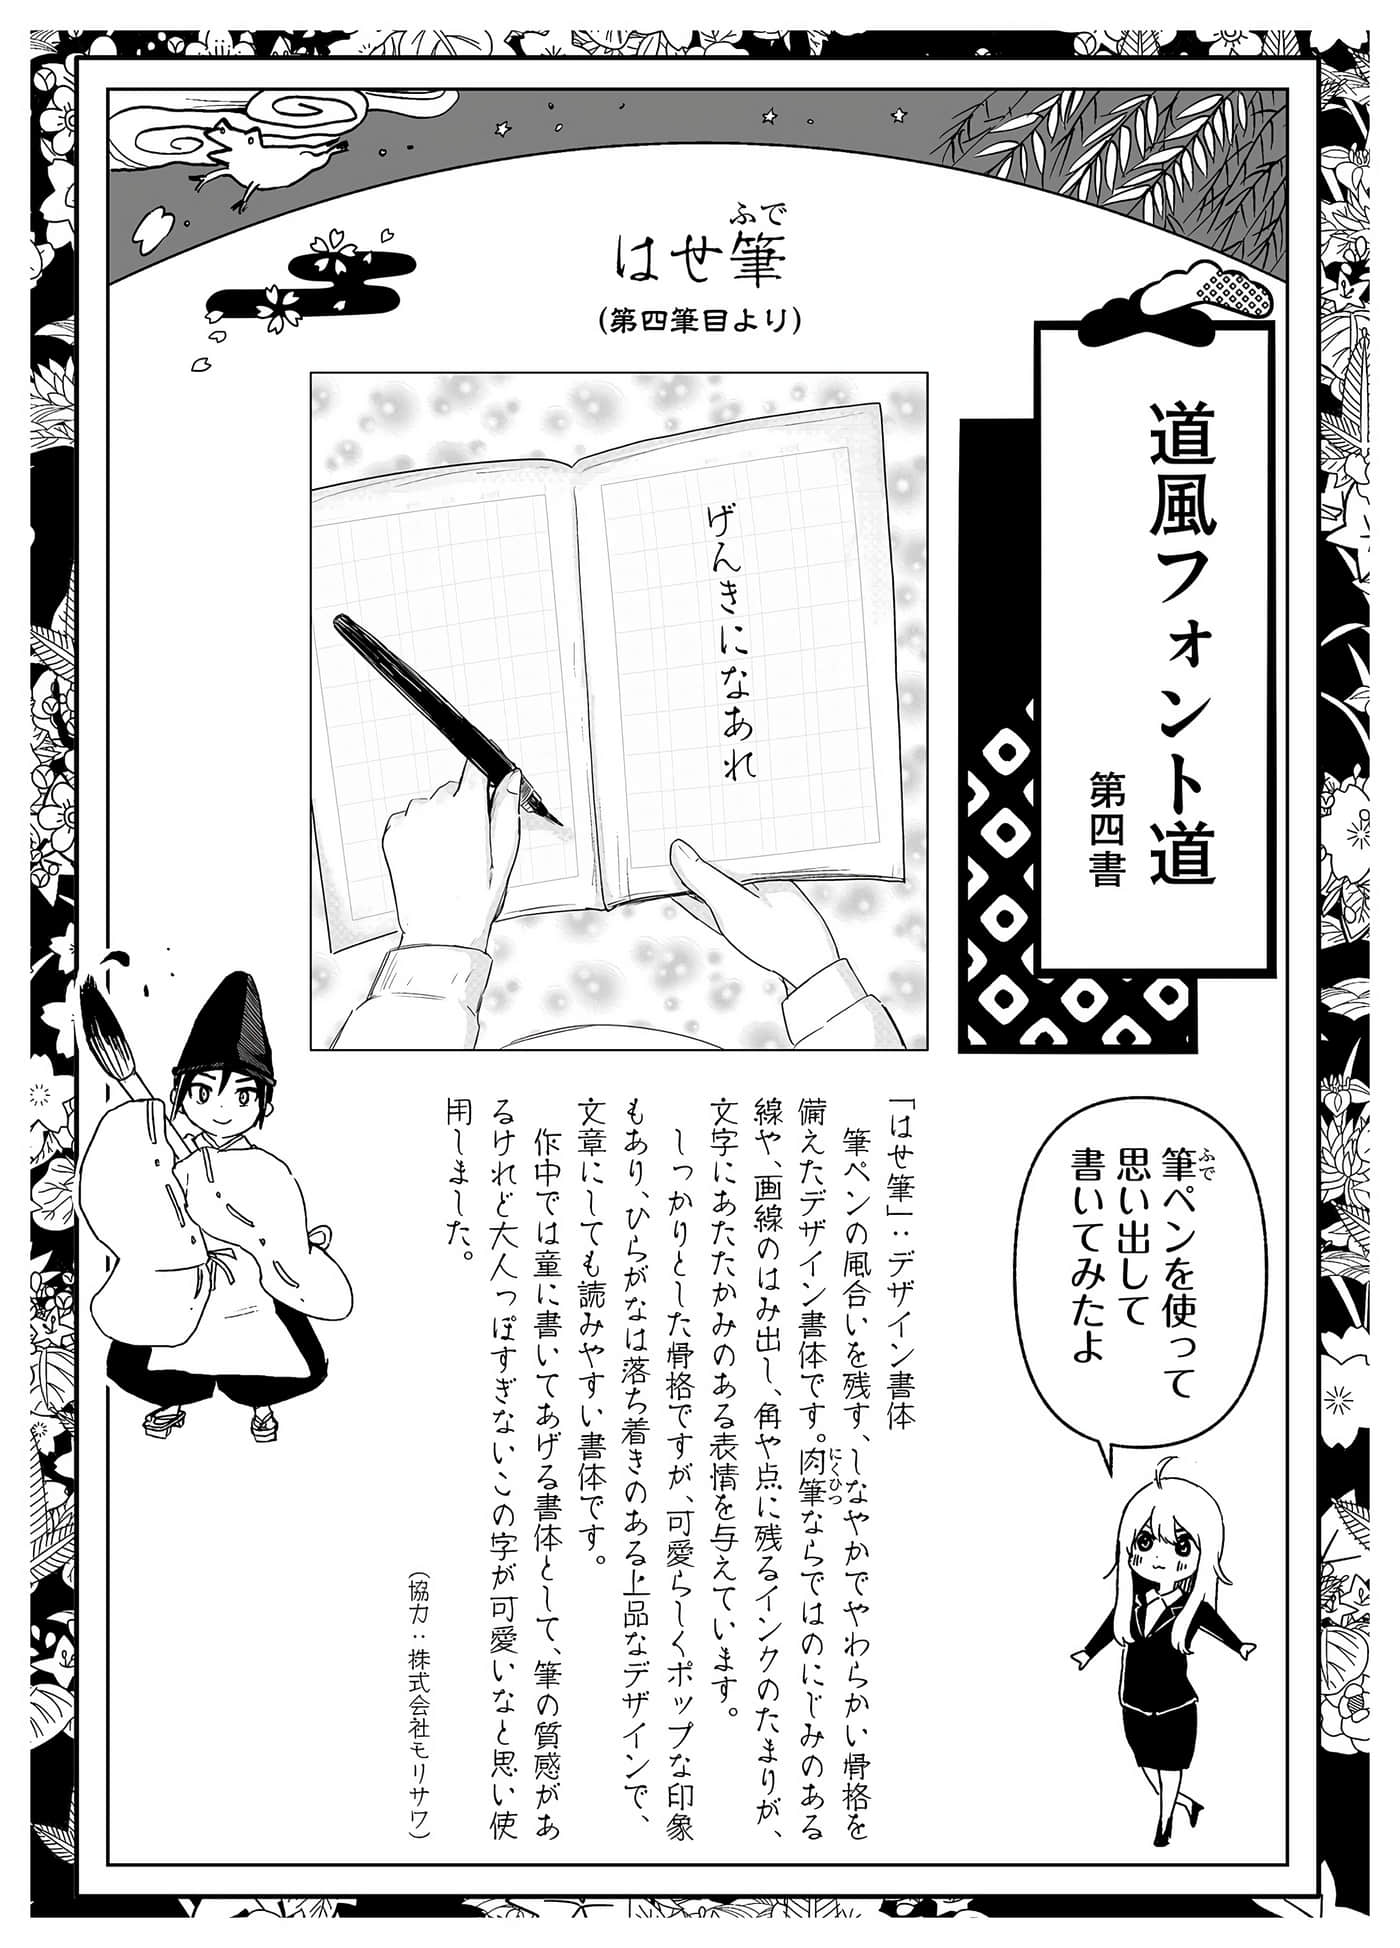 はせ筆
ふで
(第四筆目より)
道風フォント道
第四書
げんきになあれ
筆ペンを使って
ふで
思い出して
書いてみたよ
「はせ筆」：デザイン書体
筆ペンの風合いを残す、しなやかでやわらかい骨格を
備えたデザイン書体です。肉筆ならではのにじみのある
にくひつ
線や、画線のはみ出し、角や点に残るインクのたまりが、
文字にあたたかみのある表情を与えています。
しっかりとした骨格ですが、可愛らしくポップな印象
もあり、ひらがなは落ち着きのある上品なデザインで、
文章にしても読みやすい書体です。
作中では童に書いてあげる書体として、筆の質感があ
るけれど大人っぽすぎないこの字が可愛いなと思い使
用しました。
（協力：株式会社モリサワ）